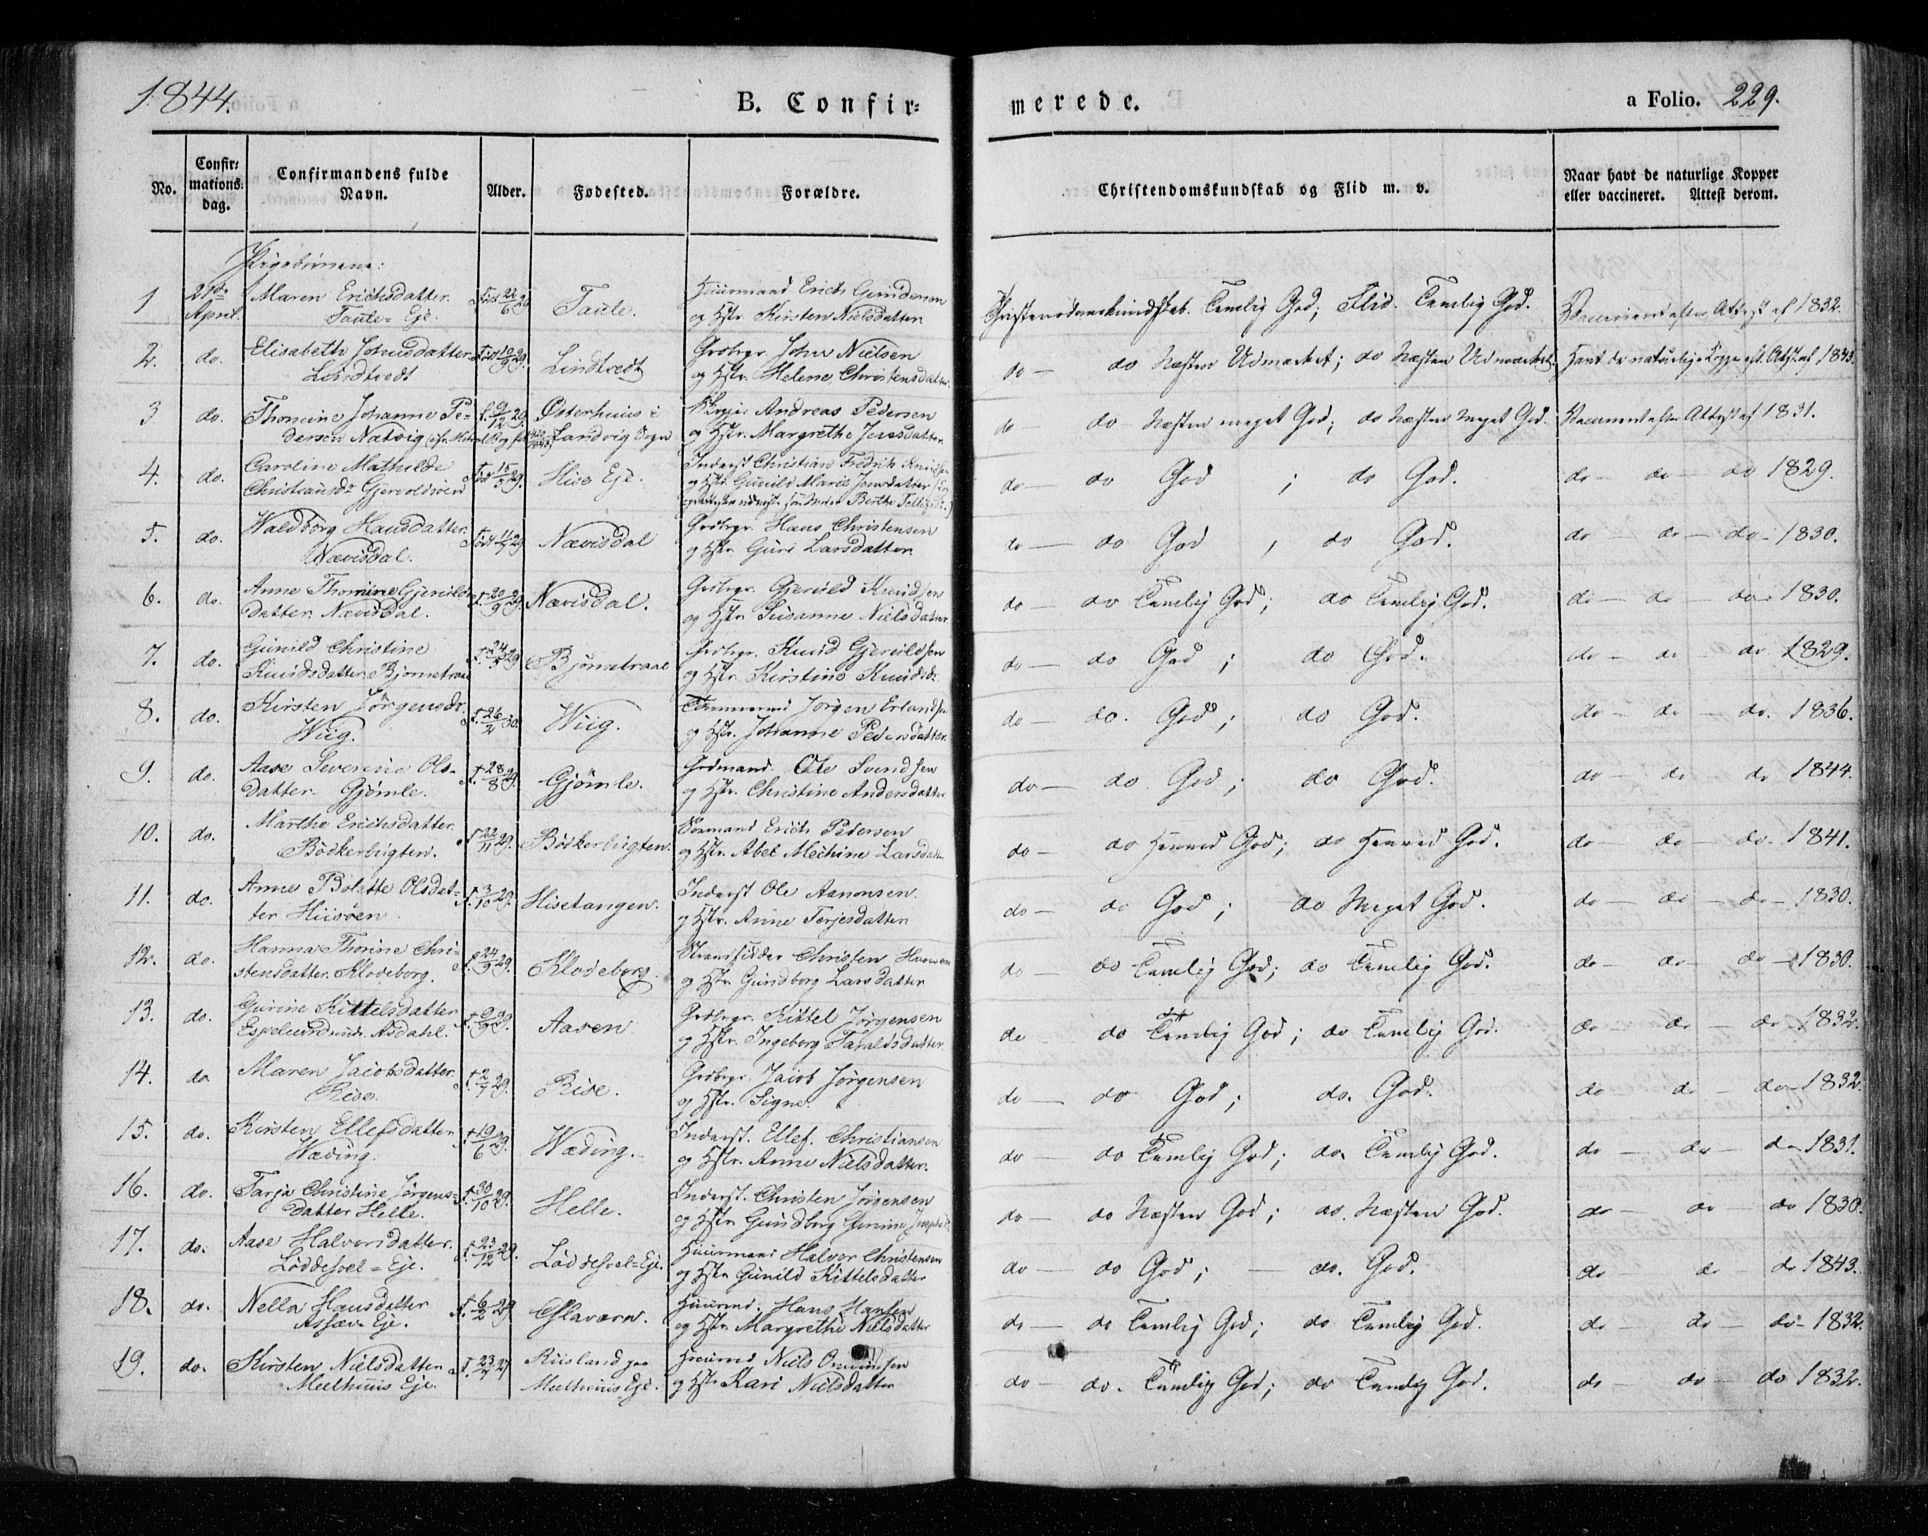 1844.
B. Confir=
merede.
a Folio. 229.
No.
Confir=
mations=
dag.
Confirmandens fulde
Navn.
Alder.
Fødested.
Forældre.
Christendomskundskab og Flid m. v.
Naar havt de naturlige Kopper
eller vaccineret. Attest derom.
Pigebørnene:
1 21de April. Maren Erichsdatter Taule=Eje. født 22/6 29 Taule. Huusmand Erich
og Hstr. Kirsten Nielsdatter
Christendomskundskab. Temlig God; Flid. Temlig God. Vaccineret efter Attest af 1832.
2. do. Elisabeth Johnsdatter Lindtvedt født 10/9 29. Lindtvedt Grdbrgr. John Nielsen
og Hstr. Helene Christensdatter
do — do Næsten Udmærket; do Næsten Udmærket; Havt de naturlige Kopper eft. Attest af 1843.
3 do. Thomine Johanne Pedersen Natvig f. 9/12 29. Østerhuus i Landvig Sogn Andreas Pedersen
og Hstr. Margrethe Jensdatter
do do Næsten meget God; do Næsten Meget God. Vaccineret efter Attest af 1831.
4. do. Caroline Mathilde Christiansdr Gjervoldsøen født 15/5 29. Hisø Eje. Inderst Christian Fredrik Knudsen
og Hstr. Gunild Marie
do — do God ; do God. do — do — do 1829.
5. do. Waldborg Hansdatter Nævisdal. født 11/7 29 Nævisdal Grdbrgr. Hans Christensen
og Hstr. Guri Larsdatter
do — do God , do God. do — do — do — 1830.
6. do. Anne Thomine Gjeruldsdatter Nævisdal. f. 20/9 29. Nævisdal. Grdbrgr. Gjeruld Knudsen
og Hstr. Susanne Nielsdatter
do — do Temlig God; do Temlig God. do — do — do — 1830.
7. do. Gunild Christine Knudsdatter Bjørnetraae f. 24/5 29 Bjørnetraae Grdbrgr. Knud Gjeruldsen
og Hstr. Kirstine Knudsdr.
do — do God; do God. do — do — do 1829.
8. do. Kirsten Jörgensdr. Wiig. f. 26/2 30. Wiig. Tømmermd Jörgen Erlandsen
og Hstr. Johanne Pedersdatter
do — do. God; do God. do — do — do. 1836.
9. do. Aase Severine Olsdatter Gjömle. f. 28/8 29. Gjömle. Grdmand. Ole Svendsen
og Hstr. Christine Andersdatter
do — do. God; do God. do — do — do 1844.
10. do. Marthe Erichsdatter. Bödkerbugten. f 22/11 29. Bödkerbugten. Sømand Erich Pedersen
og Hstr. Abel Mechine Larsdatter
do — do Henved God; do Henved God. do — do — do. 1841.
11. do. Anne Bolette Olsdatter Hiisöen. f. 3/10 29. Hisetangen. Inderst Ole Aanonsen.
og Hstr. Anne Terjesdatter
do — do God; do Meget God. do — do — do — 1830.
12. do. Hanna Thorine Christensdatter. Klodeborg. f. 24/9 29. Klodeborg. Strandsidder Christen Hansen
og Hstr. Gundborg Larsdatter
do — do Temlig God; do Temlig God. do — do — do — 1830.
13. do. Gurine Kittelsdatter Asdahl. 9/9 29. Aasen. Grdbrgr. Kittel Jörgensen
og Hstr. Ingeborg Taraldsdatter
do do Temlig God; do Temlig God. do — do — do — 1832.
14. do Maren Jacobsdatter. Rise. f. 2/7 29. Rise. Grdbrgr. Jacob Jörgensen
og Hstr. Signe.
do — do God; do. God. do do do — 1832.
15. do. Kirsten Ellefsdatter Wæding. f. 19/6 29. Wæding. Inderst. Ellef. Christiansen
og Hstr. Anne Nielsdatter.
do — do Temlig God; do. Temlig God. do — do — do — 1831.
16. do. Tarje Christine Jörgensdatter Helle. f. 30/10 29. Helle. Inderst. Christen Jörgensen
og Hstr. Gundborg
do — do Næsten God; do. Næsten God. do — do — do 1830.
17. do. Aase Halvorsdatter. Løddesvel=Eje. f. 23/12 29. Løddesvel=Eje. Huusmand Halvor Christensen
og Hstr Gunild Kittelsdatter
do — do God; — do. God. do do — do 1843.
18. do. Nella Hansdatter Assæv Eje. f. 6/2 29. Huusmd. Hans Hansen
og Hstr. Margrethe Nielsdatter
do — do Temlig God; do Temlig God. do — do — do — 1832.
19. do. Kirsten Nielsdatter Meelhuus Eje. f. 23/7 29 Riisland paa Meelhuus Eje. Huusmd Niels
og Hstr Kari Nielsdatter
do — do. Temlig God; do Temlig God. do — do — do 1832.